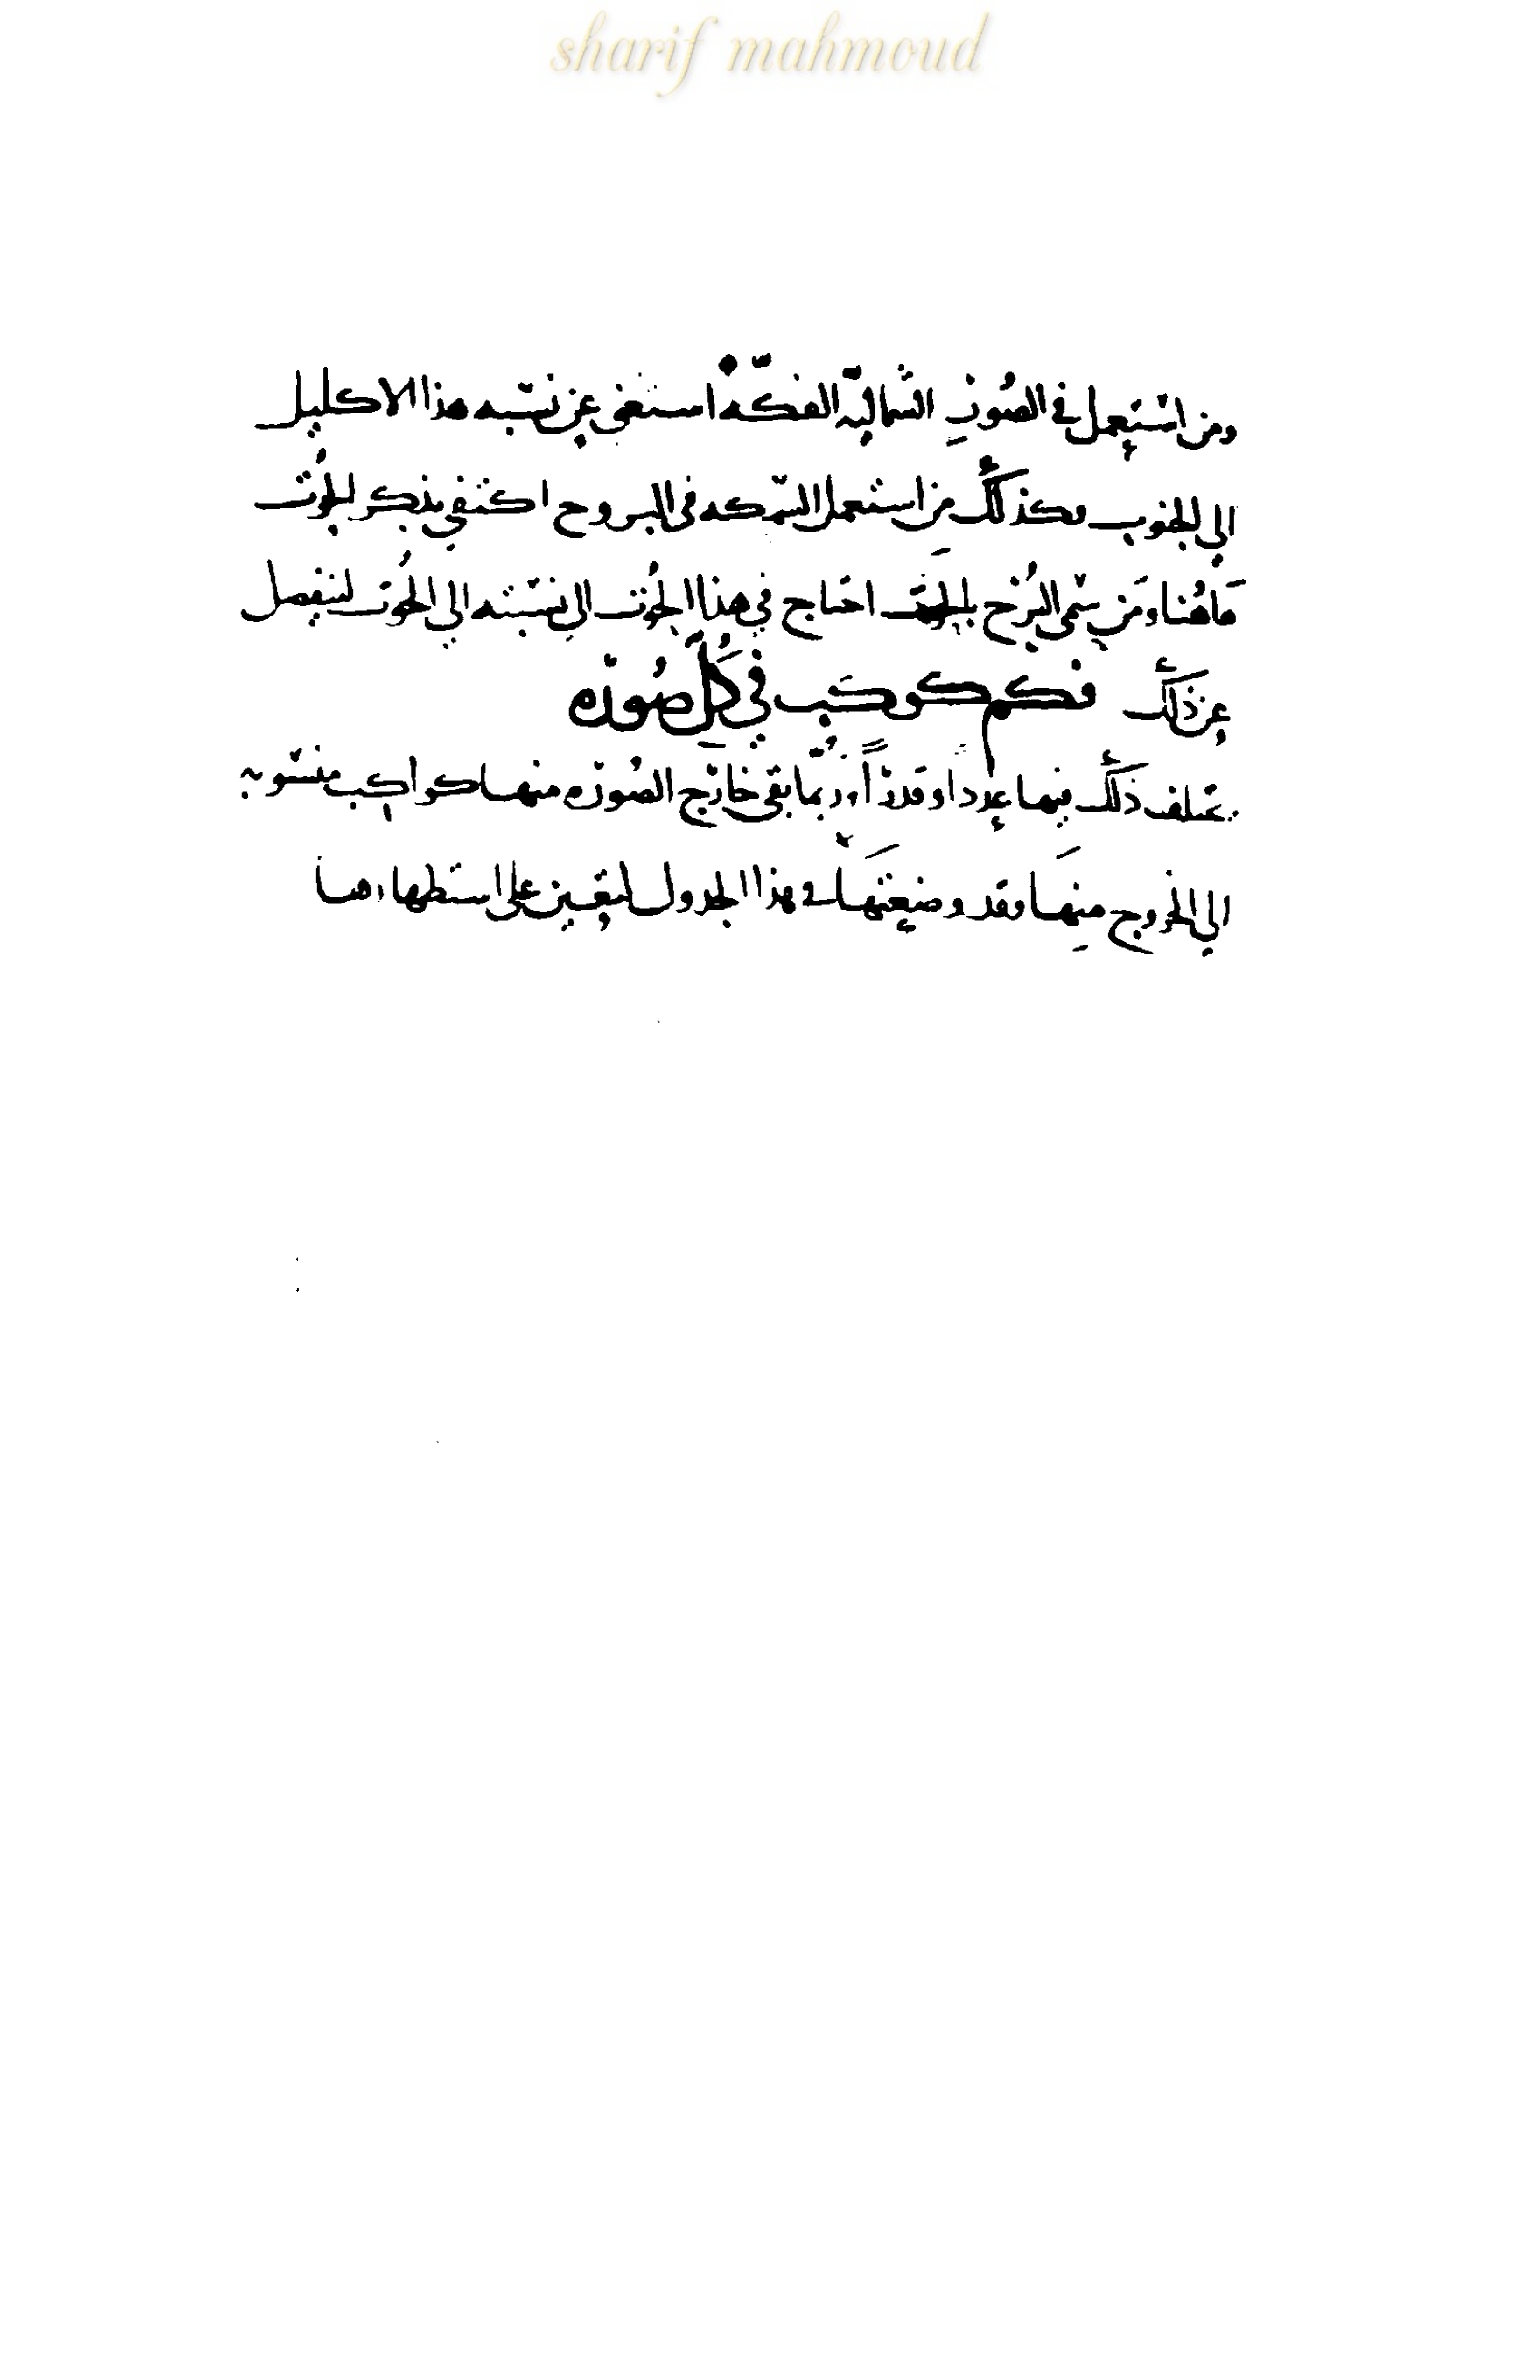 sharif mahmoud
ومن استعمل في الصور الشماليه الفكّه استغنى عن نسبه هذا الاكليل
الى الجنوب وكذلك من استعمل السمكه فى البروج اكتفي بذكر الحُوت
هَاهُنا ومَن سمّى البُرج بالحوت احتاج في هذا الحُوت الي نسبته الي الحُوت لينفصل
عن ذلك فكم كوكَب في كُلِّ صُورَه
يختلف ذلك فيها عدداً وقدراً ورُبّما بقى خارج الصُورَه منها كواكب منسوبه
الي الخروج مِنهَا وقد وضعتهَا في هذا الجدول ليعين على استظهارها